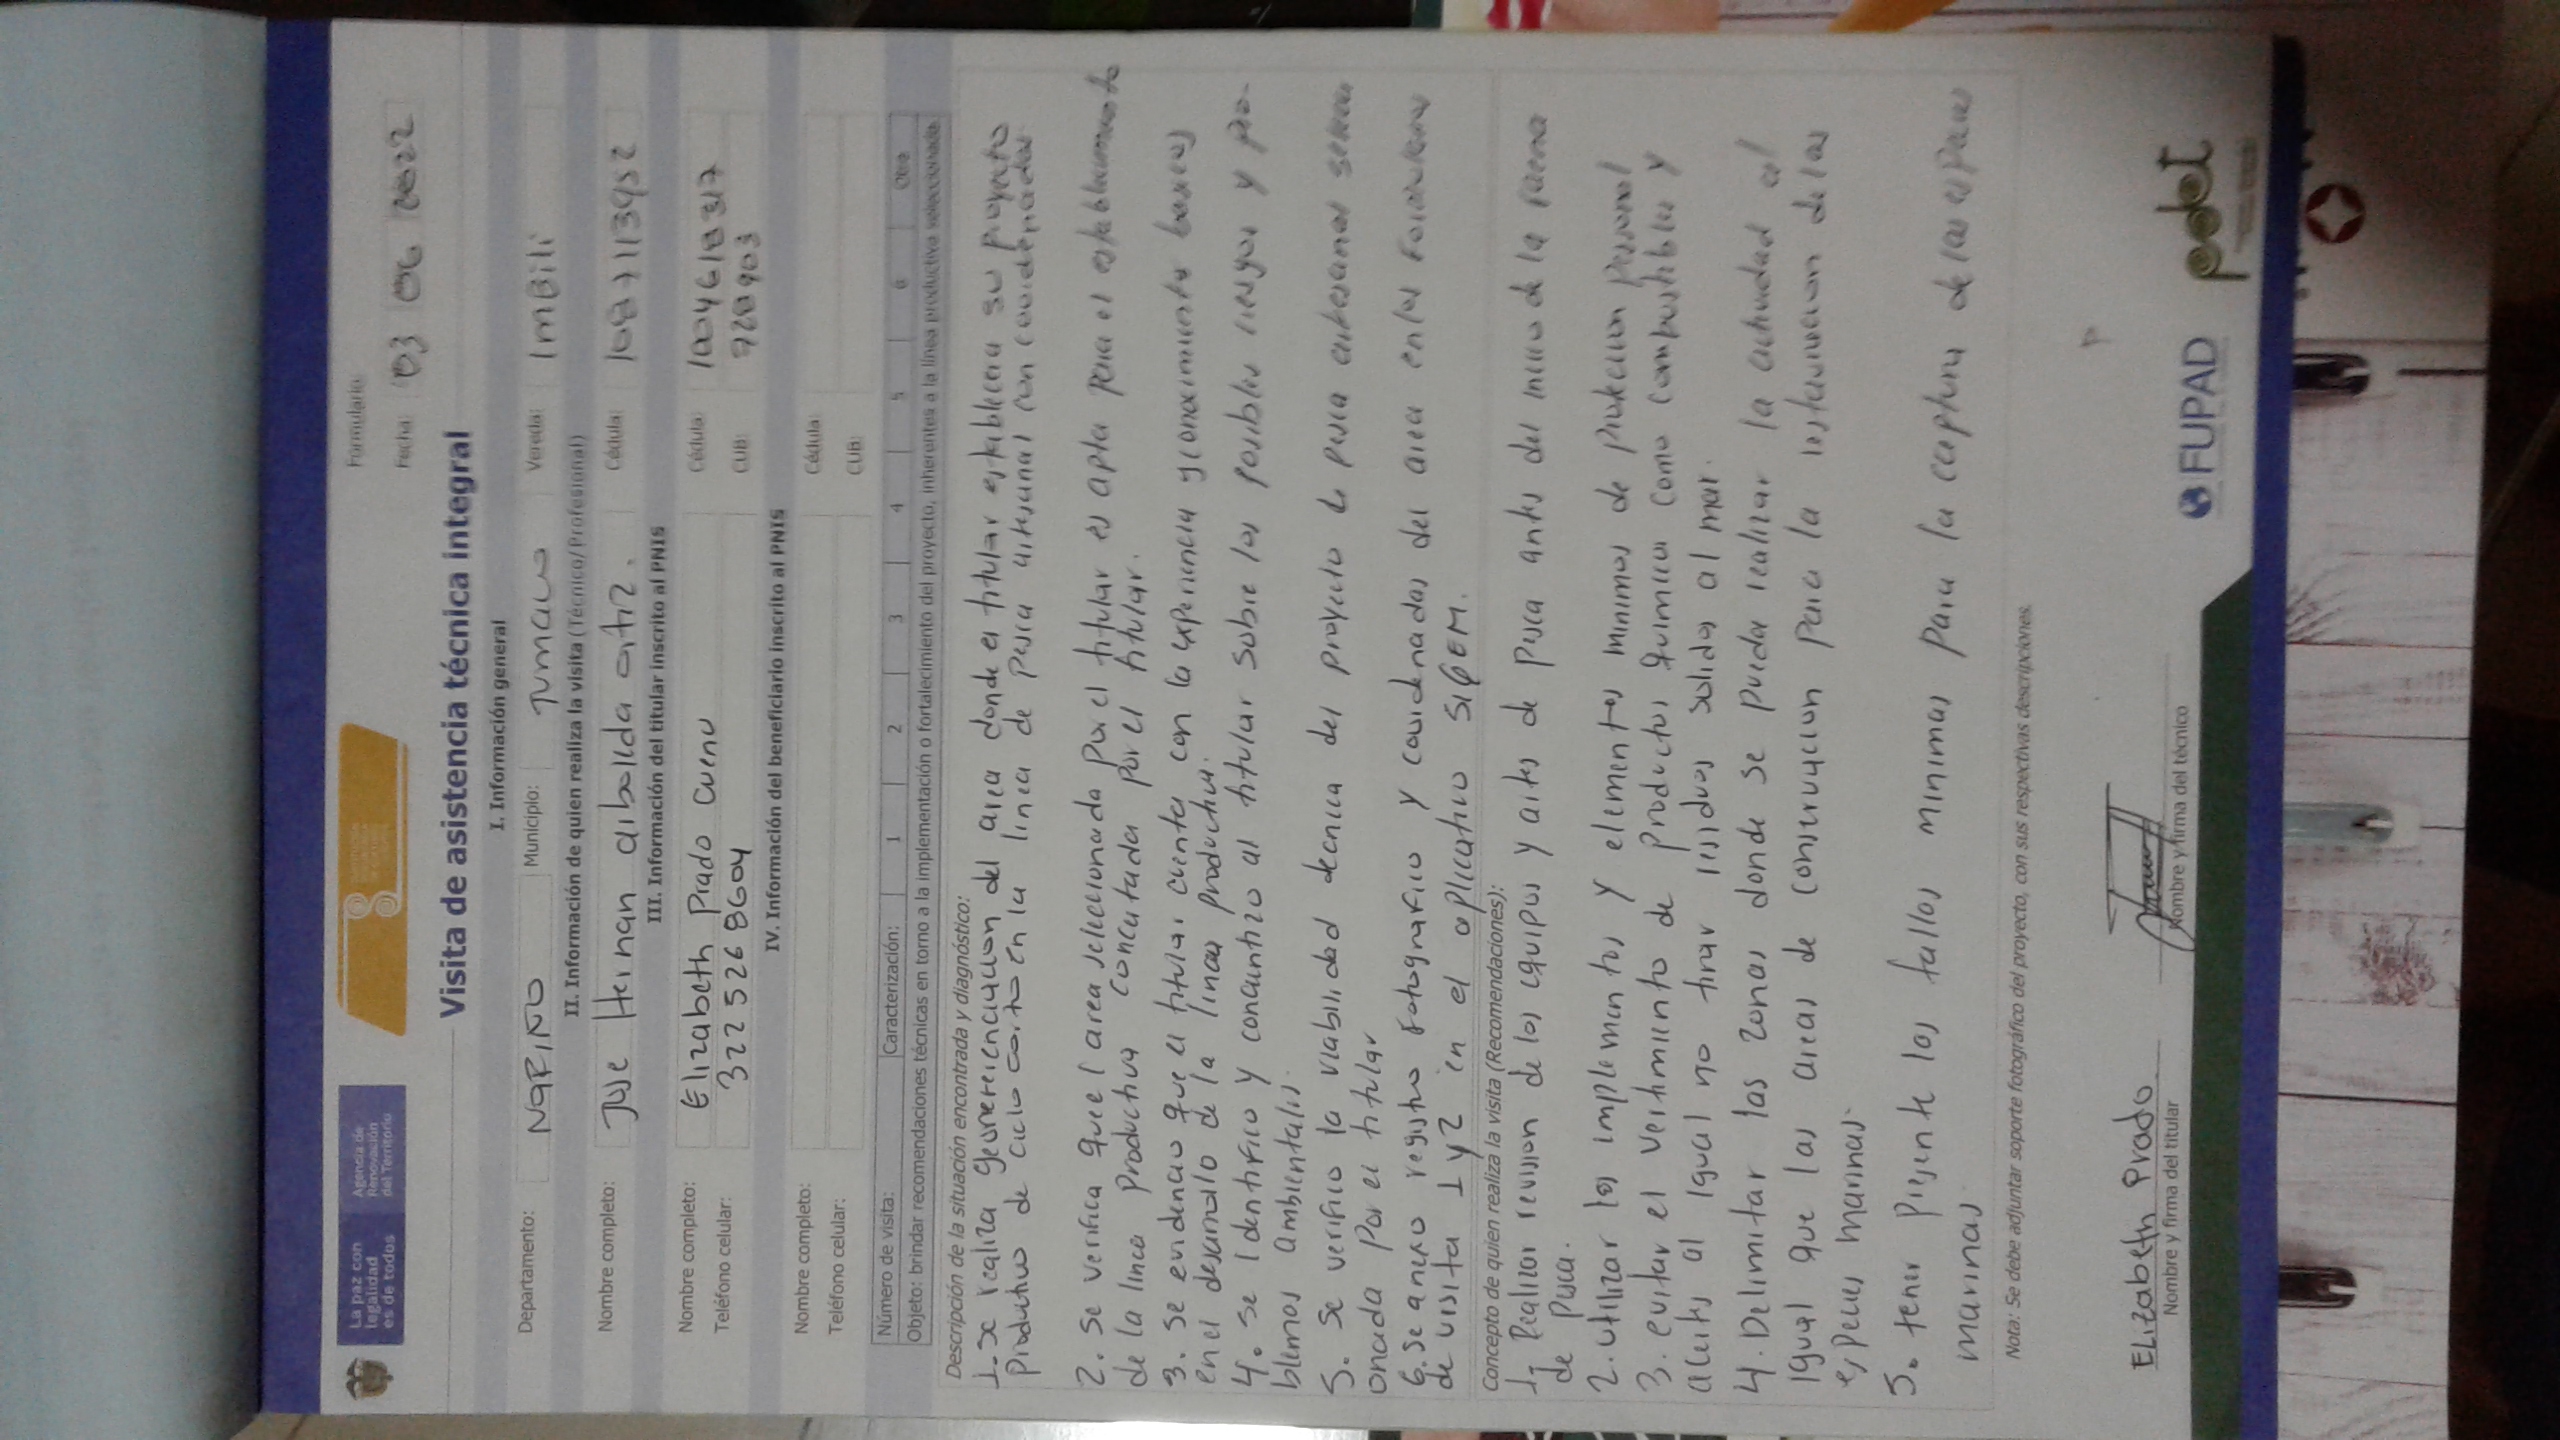 La paz con
legalidad
es de todos
Agencia de
Renovación
del Territorio
Formulario:
Fecha: 03 06 2022
Visita de asistencia técnica integral
I. Información general
Departamento: NARIÑO Municipio: Tumaco Vereda: ImBili
II. Información de quien realiza la visita (Técnico/Profesional)
Nombre completo: Jose Hernan arboleda ortiz. Cédula: 1087113952
III. Información del titular inscrito al PNIS
Nombre completo: Elizabeth Prado Cuenu Cédula: 1004618317
Teléfono celular: 322 526 8604 CUB: 928903
IV. Información del beneficiario inscrito al PNIS
Nombre completo: Cédula:
Teléfono celular: CUB:
Número de visita: Caracterización: 1 2 3 4 5 6 Otra
Objeto: brindar recomendaciones técnicas en torno a la implementación o fortalecimiento del proyecto, inherentes a la línea productiva seleccionada.
Descripción de la situación encontrada y diagnóstico:
1. se realiza georeferenciacion del area donde el titular establecera su proyecto
productivo de ciclo corto en la linea de pesca artesanal con coordenadas
2. Se verifica que el area seleccionada por el titular es apta para el establecimiento
de la linea productiva concertada por el titular.
3. Se evidencio que el titular cuenta con la experiencia y conocimientos basicos
en el desarrollo de la linea productiva.
4. se Identifico y concientizo al titular sobre los posibles riesgos y pro-
blemas ambientales.
5. se verifico la viabilidad tecnica del proyecto de pesca artesanal selecci
onada por el titular
6. Se anexo registro fotografico y coordenadas del area en los formularios
de visita 1 y 2 en el aplicativo SIGEM.
Concepto de quien realiza la visita (Recomendaciones):
1. Realizar revision de los equipos y artes de pesca antes del inicio de la faena
de pesca.
2. Utilizar los implementos y elementos minimos de proteccion personal
3. evitar el vertimiento de productos quimicos como combustibles y
aceites al igual no tirar residuos solidos al mar.
4. Delimitar las zonas donde se pueda realizar la actividad al
igual que las areas de conservacion para la restauracion de las
especies marinas.
5. tener presente las tallas minimas para la captura de las especies
marinas
Nota: Se debe adjuntar soporte fotográfico del proyecto, con sus respectivas descripciones.
Elizabeth Prado
Nombre y firma del titular
Nombre y firma del técnico
FUPAD
pdet